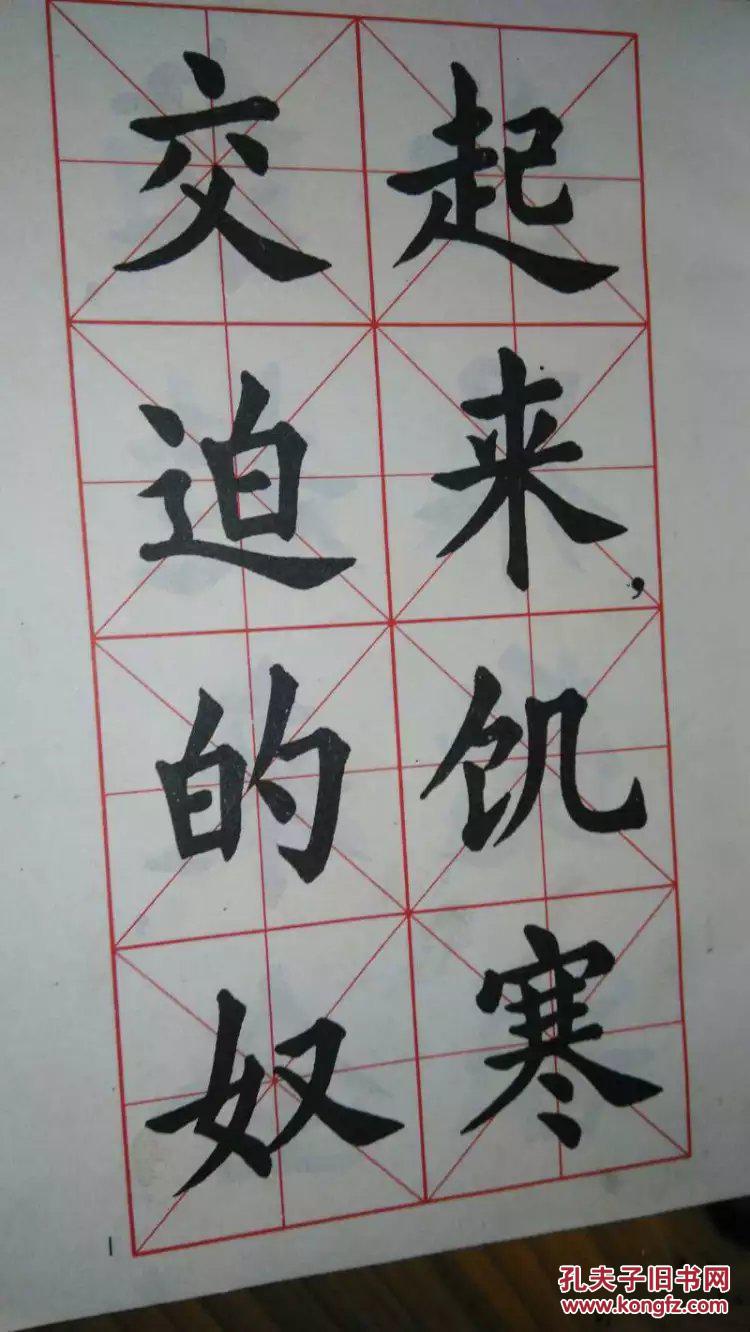 起来,饥寒
交迫的奴
1
孔夫子旧书网
www.kongfz.com